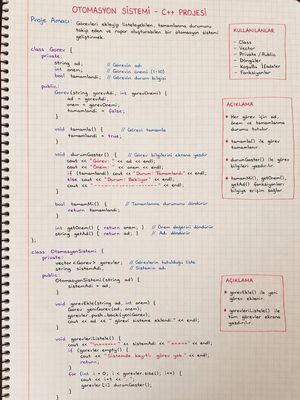 OTOMASYON SİSTEMİ - C++ PROJESİ
Proje Amacı: Görevleri ekleyip listeleyebilen, tamamlanma durumunu
takip eden ve rapor oluşturabilen bir otomasyon sistemi
geliştirmek.
KULLANILANLAR
- Class
- Vector
- Private / Public
- Döngüler
- Koşullu İfadeler
- Fonksiyonlar
class Gorev {
private:
string ad; // Görevin adı
int onem; // Görevin önemi (1-10)
bool tamamlandi; // Görevin durum bilgisi
public:
Gorev(string gorevAdi, int gorevOnemi) {
ad = gorevAdi;
onem = gorevOnemi;
tamamlandi = false;
}
AÇIKLAMA
* Her görev için ad,
önem ve tamamlanma
durumu tutulur.
* tamamla() ile görev
tamamlanır.
* durumGoster() ile görev
bilgileri ekrana
yazdırılır.
* tamamMi(), getOnem(),
getAd() fonksiyonları
bilgiye erişim sağlar.
void tamamla() { // Görevi tamamla
tamamlandi = true;
}
void durumGoster() { // Görev bilgilerini ekrana yazdır
cout << "Görev: " << ad << endl;
cout << "Önem: " << onem << endl;
if (tamamlandi) cout << "Durum: Tamamlandı" << endl;
else cout << "Durum: Bekliyor" << endl;
cout << "--------------------" << endl;
}
bool tamamMi() { // Tamamlanma durumunu döndür
return tamamlandi;
}
int getOnem() { return onem; } // Önem değerini döndürür
string getAd() { return ad; } // Adı döndürür
};
class OtomasyonSistemi {
private:
vector<Gorev> gorevler; // Görevlerin tutulduğu liste
string sistemAdi; // Sistemin adı
public:
OtomasyonSistemi(string ad) {
sistemAdi = ad;
}
AÇIKLAMA
* gorevEkle() ile yeni
görev eklenir.
* gorevleriListele() ile
tüm görevler ekrana
yazdırılır.
void gorevEkle(string ad, int onem) {
Gorev yeniGorev(ad, onem);
gorevler.push_back(yeniGorev);
cout << ad << " görevi sisteme eklendi." << endl;
}
void gorevleriListele() {
cout << "\n===== " << sistemAdi << " =====" << endl;
if (gorevler.empty()) {
cout << "Sistemde kayıtlı görev yok." << endl;
return;
}
for (int i = 0; i < gorevler.size(); i++) {
cout << i+1 << ". ";
gorevler[i].durumGoster();
}
}